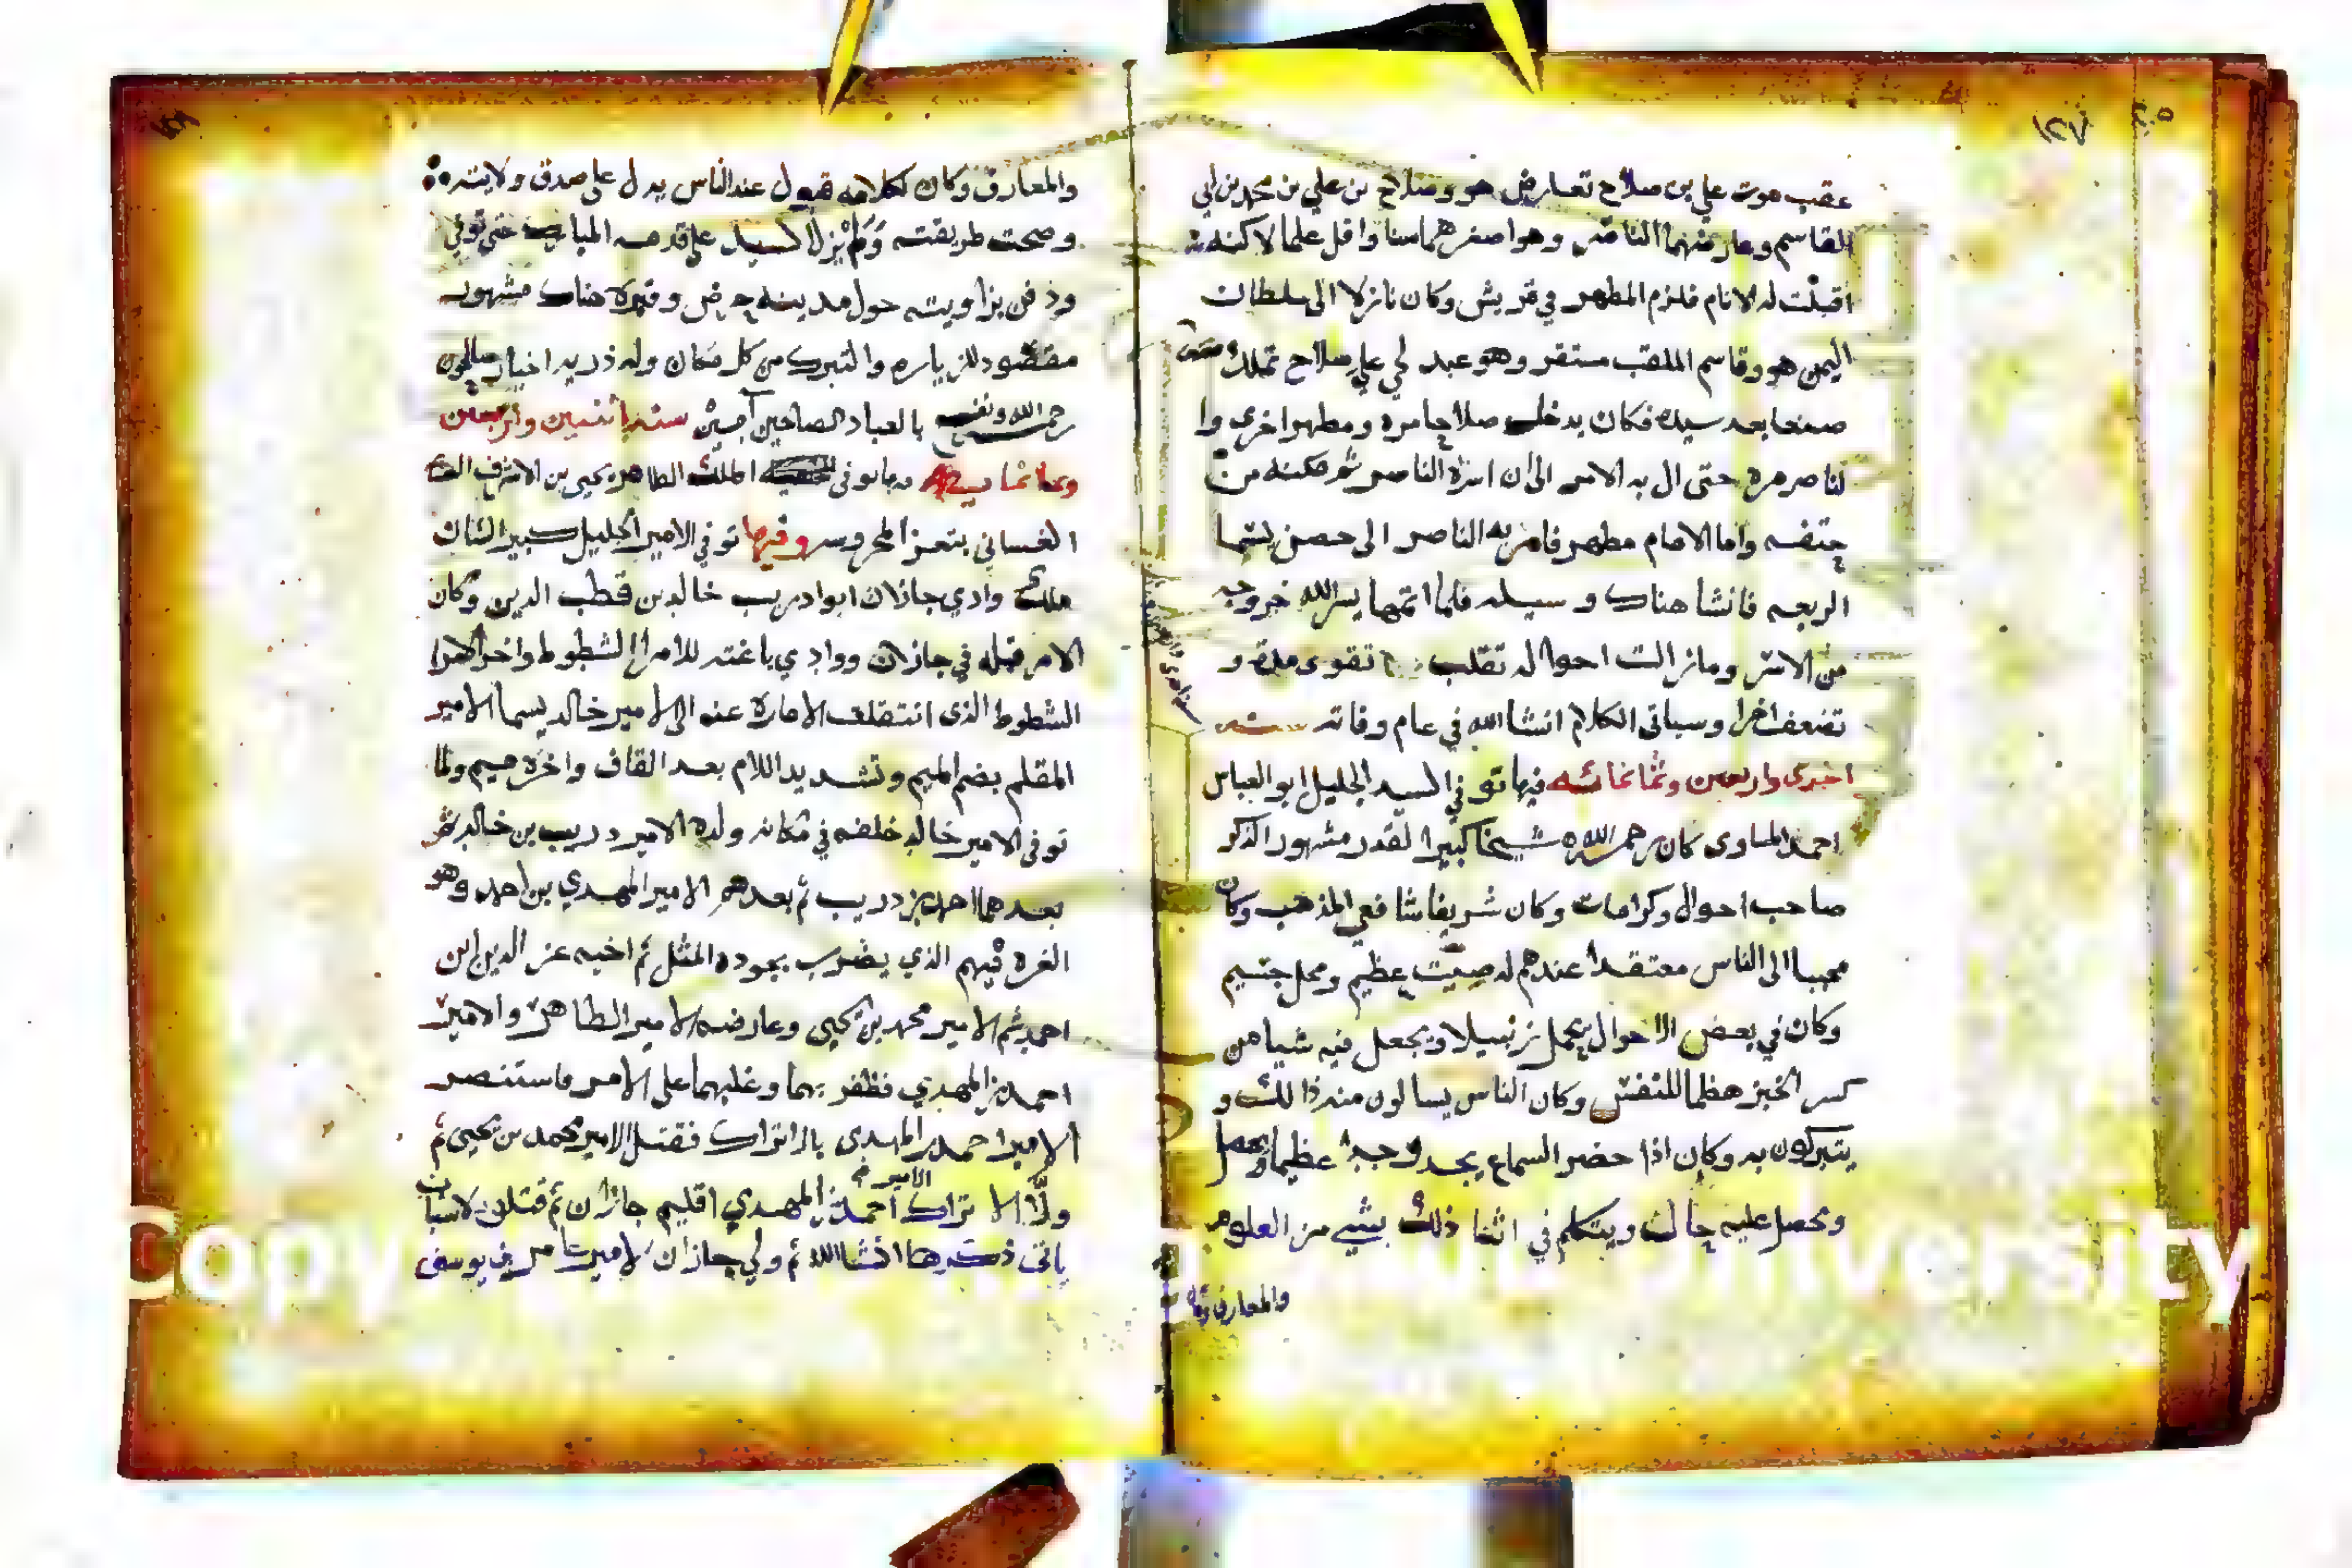 ١٤٧
عقب موت علي بن صلاح تعارض هو وصلاح بن علي بن محمد بن ابي
القاسم وعارضهما الناصر وهو اصغرهما سنا واقل علما لاكنه
اقبلت له الانام فلزم المطهر في قريش وكان نازلا الى سلطان
اليمن هو وقاسم الملقب سنقر وهو عبد لي علي صلاح تملك
صنعا بعد سيده فكان يدخل صلاحا مره ومطهرا اخرى وا
لناصر مرة حتى ال به الامر الى ان اسره الناصر ثم مكنه من
حتفه واما الامام مطهر فامر به الناصر الى حصن يسما
الربعه فانشا هناك وسيله فلما اتمها يسر الله خروجه
من الاسر وما زالت احواله تقلب تقوى مدة و
تضعف اخرا وسياتى الكلام انشا الله في عام وفاته سنه
احدى واربعين وثمانمائه فيها توفي السيد الجليل ابو العباس
احمد المساوى كان رحمه الله شيخا كبير القدر مشهور الذكر
صاحب احوال وكرامات وكان شريفا شافعي المذهب وكان
محببا الى الناس معتقدا عندهم له صيت عظيم ومحل جسيم
وكان في بعض الاحوال يحمل زنبيلا ويجعل فيه شيا من
كسر الخبز هظما للنفس وكان الناس يسالون منه ذالك و
يتبركون به وكان اذا حضر السماع يجد وجدا عظيما
ويحصل عليه حال ويتكلم في اثنا ذلك بشيى من العلوم
والمعارف
والمعارف وكان لكلامه قبول عند الناس يدل على صدق ولايته
وصحت طريقته ولم يزل السيد على قدمه المبارك حتى توفي
ودفن بزاويته حول مدينه حرض وقبره هناك مشهور
مقصود للزياره والتبرك من كل مكان وله ذريه اخيار صالحون
رحمه الله ونفع بالعباد الصالحين آمين سنه اثنين واربعين
وثمانمايه توفى الملك الظاهر يحيى بن الاشرف
الغساني بتعز المحروسه وفيها توفي الامير الجليل كبير الشان
ملك وادي جازان ابوا دريب خالد بن قطب الدين وكان
الامر قبله في جازان ووادي باغته للامرا الشطوط واخر الامرا
الشطوط الذى انتقلت الامارة عنه الى الامير خالد يسما الامير
المقلم بضم الميم وتشديد اللام بعد القاف واخره ميم ولما
توفى الامير خالد خلفه في مكانه ولده الامير دريب بن خالد ثم
بعدهما احمد بن دريب ثم بعدهم الامير المهدي بن احمد وهو
الغره فيهم الذي يضرب بجوده المثل ثم اخيه عز الدين ابن
احمد ثم الامير محمد بن يحيى وعارضه الامير الطاهر والامير
احمد بن المهدي فظفر بهما وغلبهما على الامر فاستنصر
الامير احمد بن المهدى بالاتراك فقتل الامير محمد بن يحيى ثم
ولا الاتراك الامير احمد بن المهدي اقليم جازان ثم قتلوه لاسباب
ياتى ذكرها انشا الله ثم ولي جازان الامير عامر بن يوسف